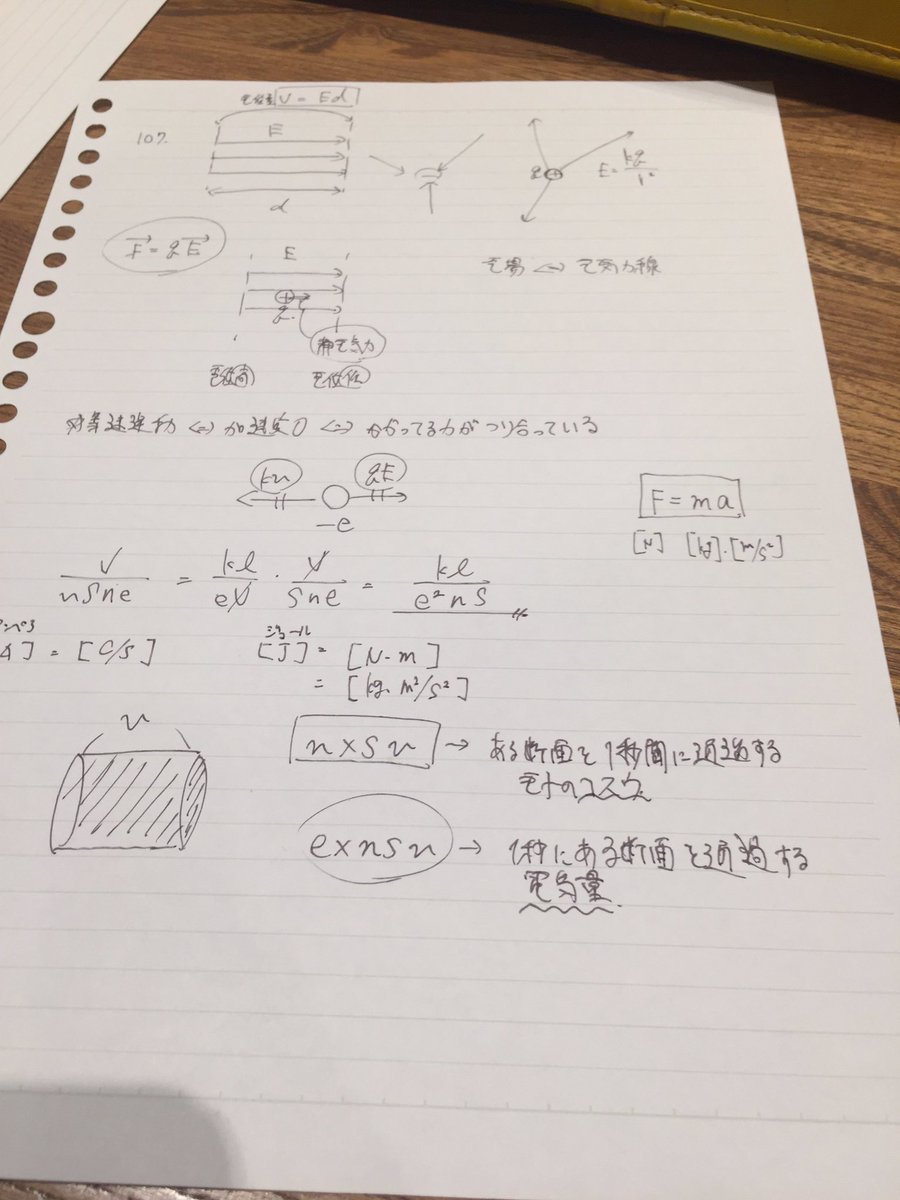 電位差 V = Ed
107.
E
d
q
E = kq/r²
F = qE
E
電場 ⇔ 電気力線
q
静電気力
電位高 電位低
等速運動 ⇔ 加速度0 ⇔ かかってる力がつり合っている
kv qE
-e
F = ma
[N] [kg]・[m/s²]
V/vSne = kl/eV · V/Sne = kl/e²nS
アンペア ジュール
A] = [C/s] [J] = [N-m]
= [kg・m²/s²]
v
n×Sv → ある断面を1秒間に通過する
電子のコスウ
e×nSv → 1秒にある断面を通過する
電気量